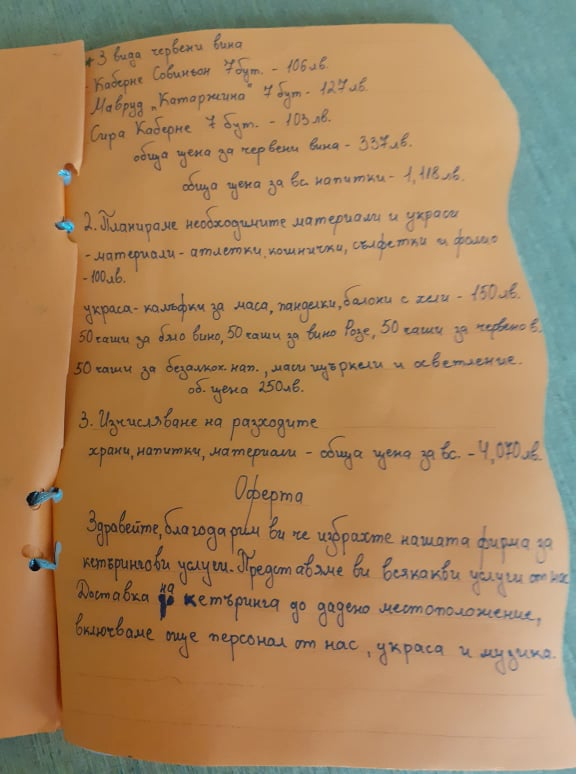 * 3 вида червени вина
- Каберне Совиньон 7бут. - 106лв.
Мавруд „Катаржина" 7 бут - 127лв.
Сира Каберне 7 бут. - 103лв.
обща цена за червени вина - 337лв.
обща цена за вс. напитки - 1,118лв.
2. Планираме необходимите материали и украси
- материали - атлетки, кошнички, сълфетки и фолио
- 100лв.
украса - калъфки за маса, панделки, балони с хели - 150лв.
50 чаши за бяло вино, 50 чаши за вино Розе, 50 чаши за червено в.
50 чаши за безалкох нап., маси щъркели и осветление.
об. цена 250лв.
3. Изчисляване на разходите
храни, напитки, материали - обща цена за вс. - 4,070лв.
Оферта
Здравейте, благодарим ви че избрахте нашата фирма за
кетърингови услуги. Представяме ви всякакви услуги от нас
Доставка на кетъринга до дадено местоположение,
включваме още персонал от нас, украса и музика.